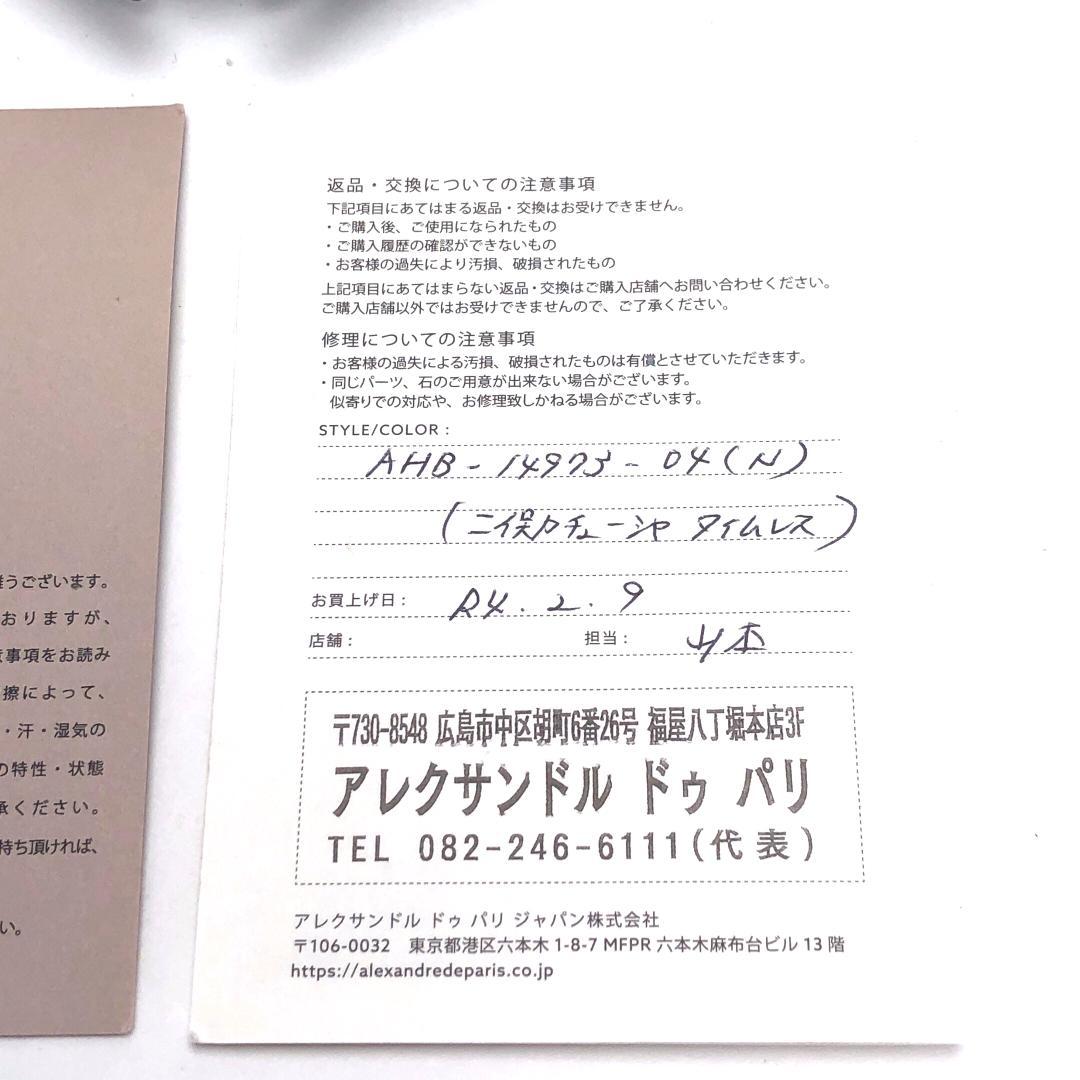 うございます。
おりますが、
意事項をお読み
擦によって、
・汗・湿気の
の特性・状態
承ください。
持ち頂ければ、
い。
返品・交換についての注意事項
下記項目にあてはまる返品・交換はお受けできません。
・ご購入後、ご使用になられたもの
・ご購入履歴の確認ができないもの
・お客様の過失により汚損、破損されたもの
上記項目にあてはまらない返品・交換はご購入店舗へお問い合わせください。
ご購入店舗以外ではお受けできませんので、ご了承ください。
修理についての注意事項
・お客様の過失による汚損、破損されたものは有償とさせていただきます。
・同じパーツ、石のご用意が出来ない場合がございます。
似寄りでの対応や、お修理致しかねる場合がございます。
STYLE/COLOR :
AHB-14973-04(N)
(二俣カチューシャ タイムレス)
お買上げ日 : R4.2.9
店舗 : 担当 : 山本
〒730-8548 広島市中区胡町6番26号 福屋八丁堀本店3F
アレクサンドル ドゥ パリ
TEL 082-246-6111(代表)
アレクサンドル ドゥ パリ ジャパン株式会社
〒106-0032 東京都港区六本木 1-8-7 MFPR 六本木麻布台ビル 13 階
https://alexandredeparis.co.jp